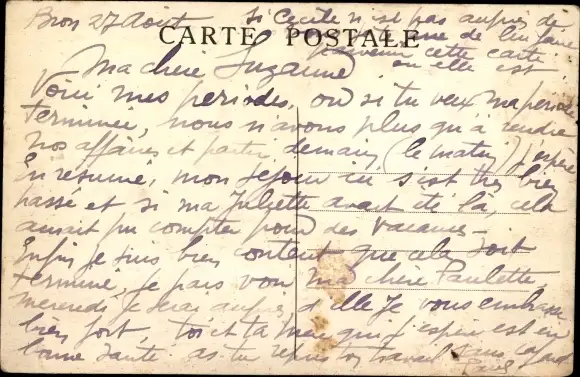 Bron 27 Août
Si Cécile n'est pas auprès de
toi de lui faire
parvenir cette carte
où elle est
CARTE POSTALE
Ma chère Suzanne
Voici mes périodes, ou si tu veux ma période
terminée, nous n'avons plus qu'à rendre
nos affaires et partir demain (le matin) j'espère
En résumé, mon séjour ici s'est très bien
passé et si ma Juliette avait été là, cela
aurait pu compter pour des vacances -
Enfin je suis bien content que cela soit
terminé, je vais voir ma chère Paulette
mercredi je serai auprès d'elle Je vous embrasse
bien fort, toi et ta qui j'espère est en
bonne santé as tu repris ton travail sans cafard
Paul